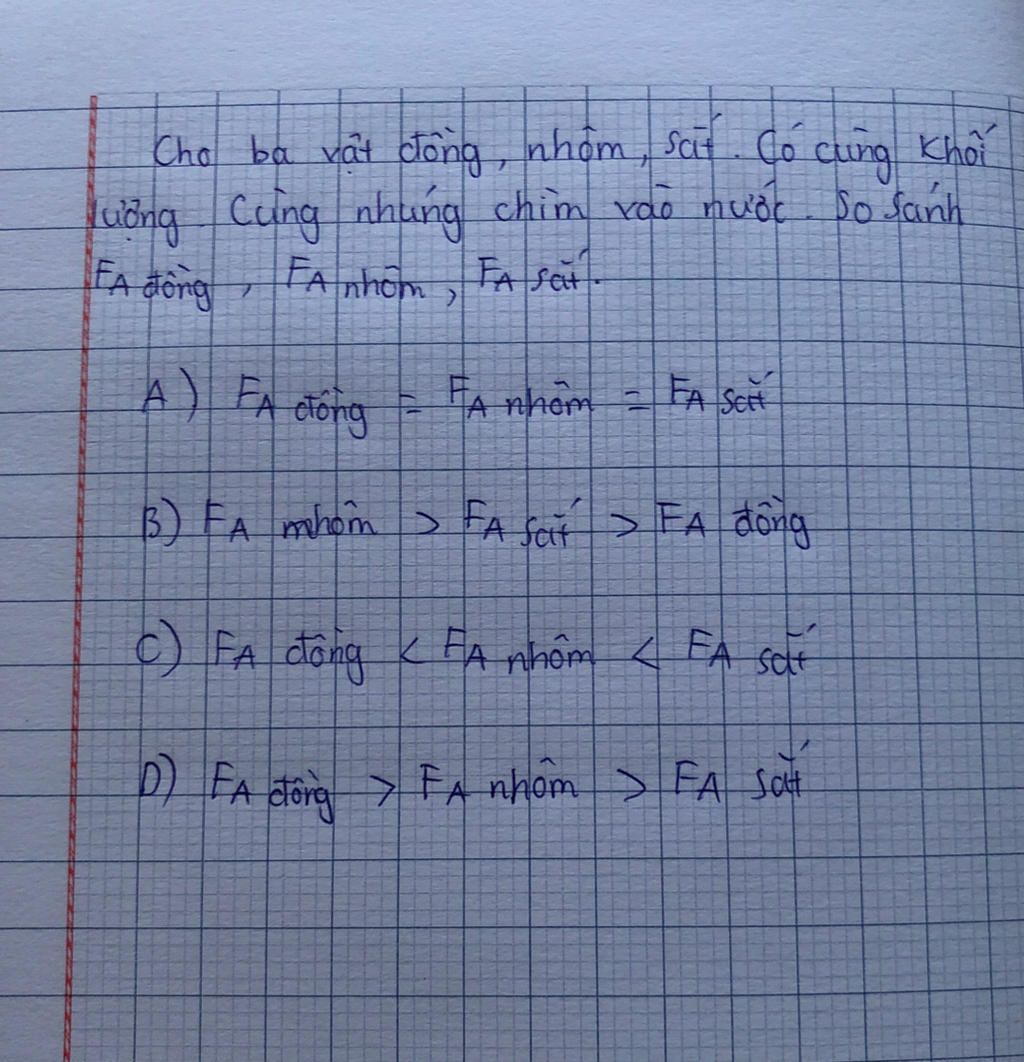 Cho ba vật đồng, nhôm, sắt. Có cùng khối
lượng. Cùng nhúng chìm vào nước. So sánh
FA đồng, FA nhôm, FA sắt.
A) FA đồng = FA nhôm = FA sắt
B) FA nhôm > FA sắt > FA đồng
C) FA đồng < FA nhôm < FA sắt
D) FA đồng > FA nhôm > FA sắt